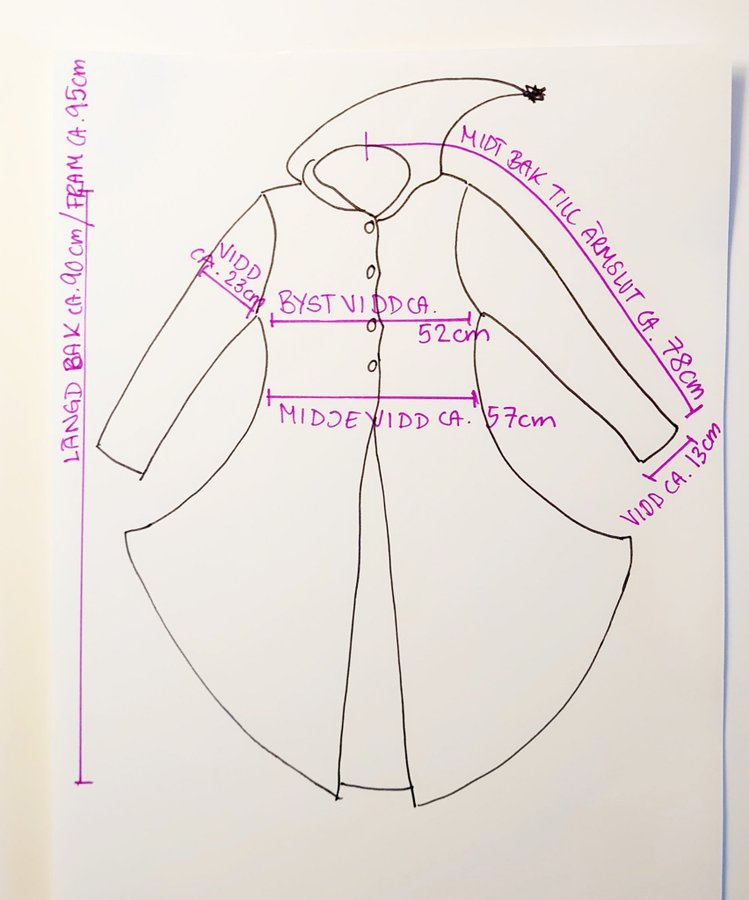 LÄNGD BAK CA. 90cm/FRAM CA. 95cm
MIDT BAK TILL ÄRMSLUT CA. 78cm
VIDD
CA. 23cm
BYST VIDD CA.
52cm
MIDJE VIDD CA. 57cm
VIDD CA. 13cm